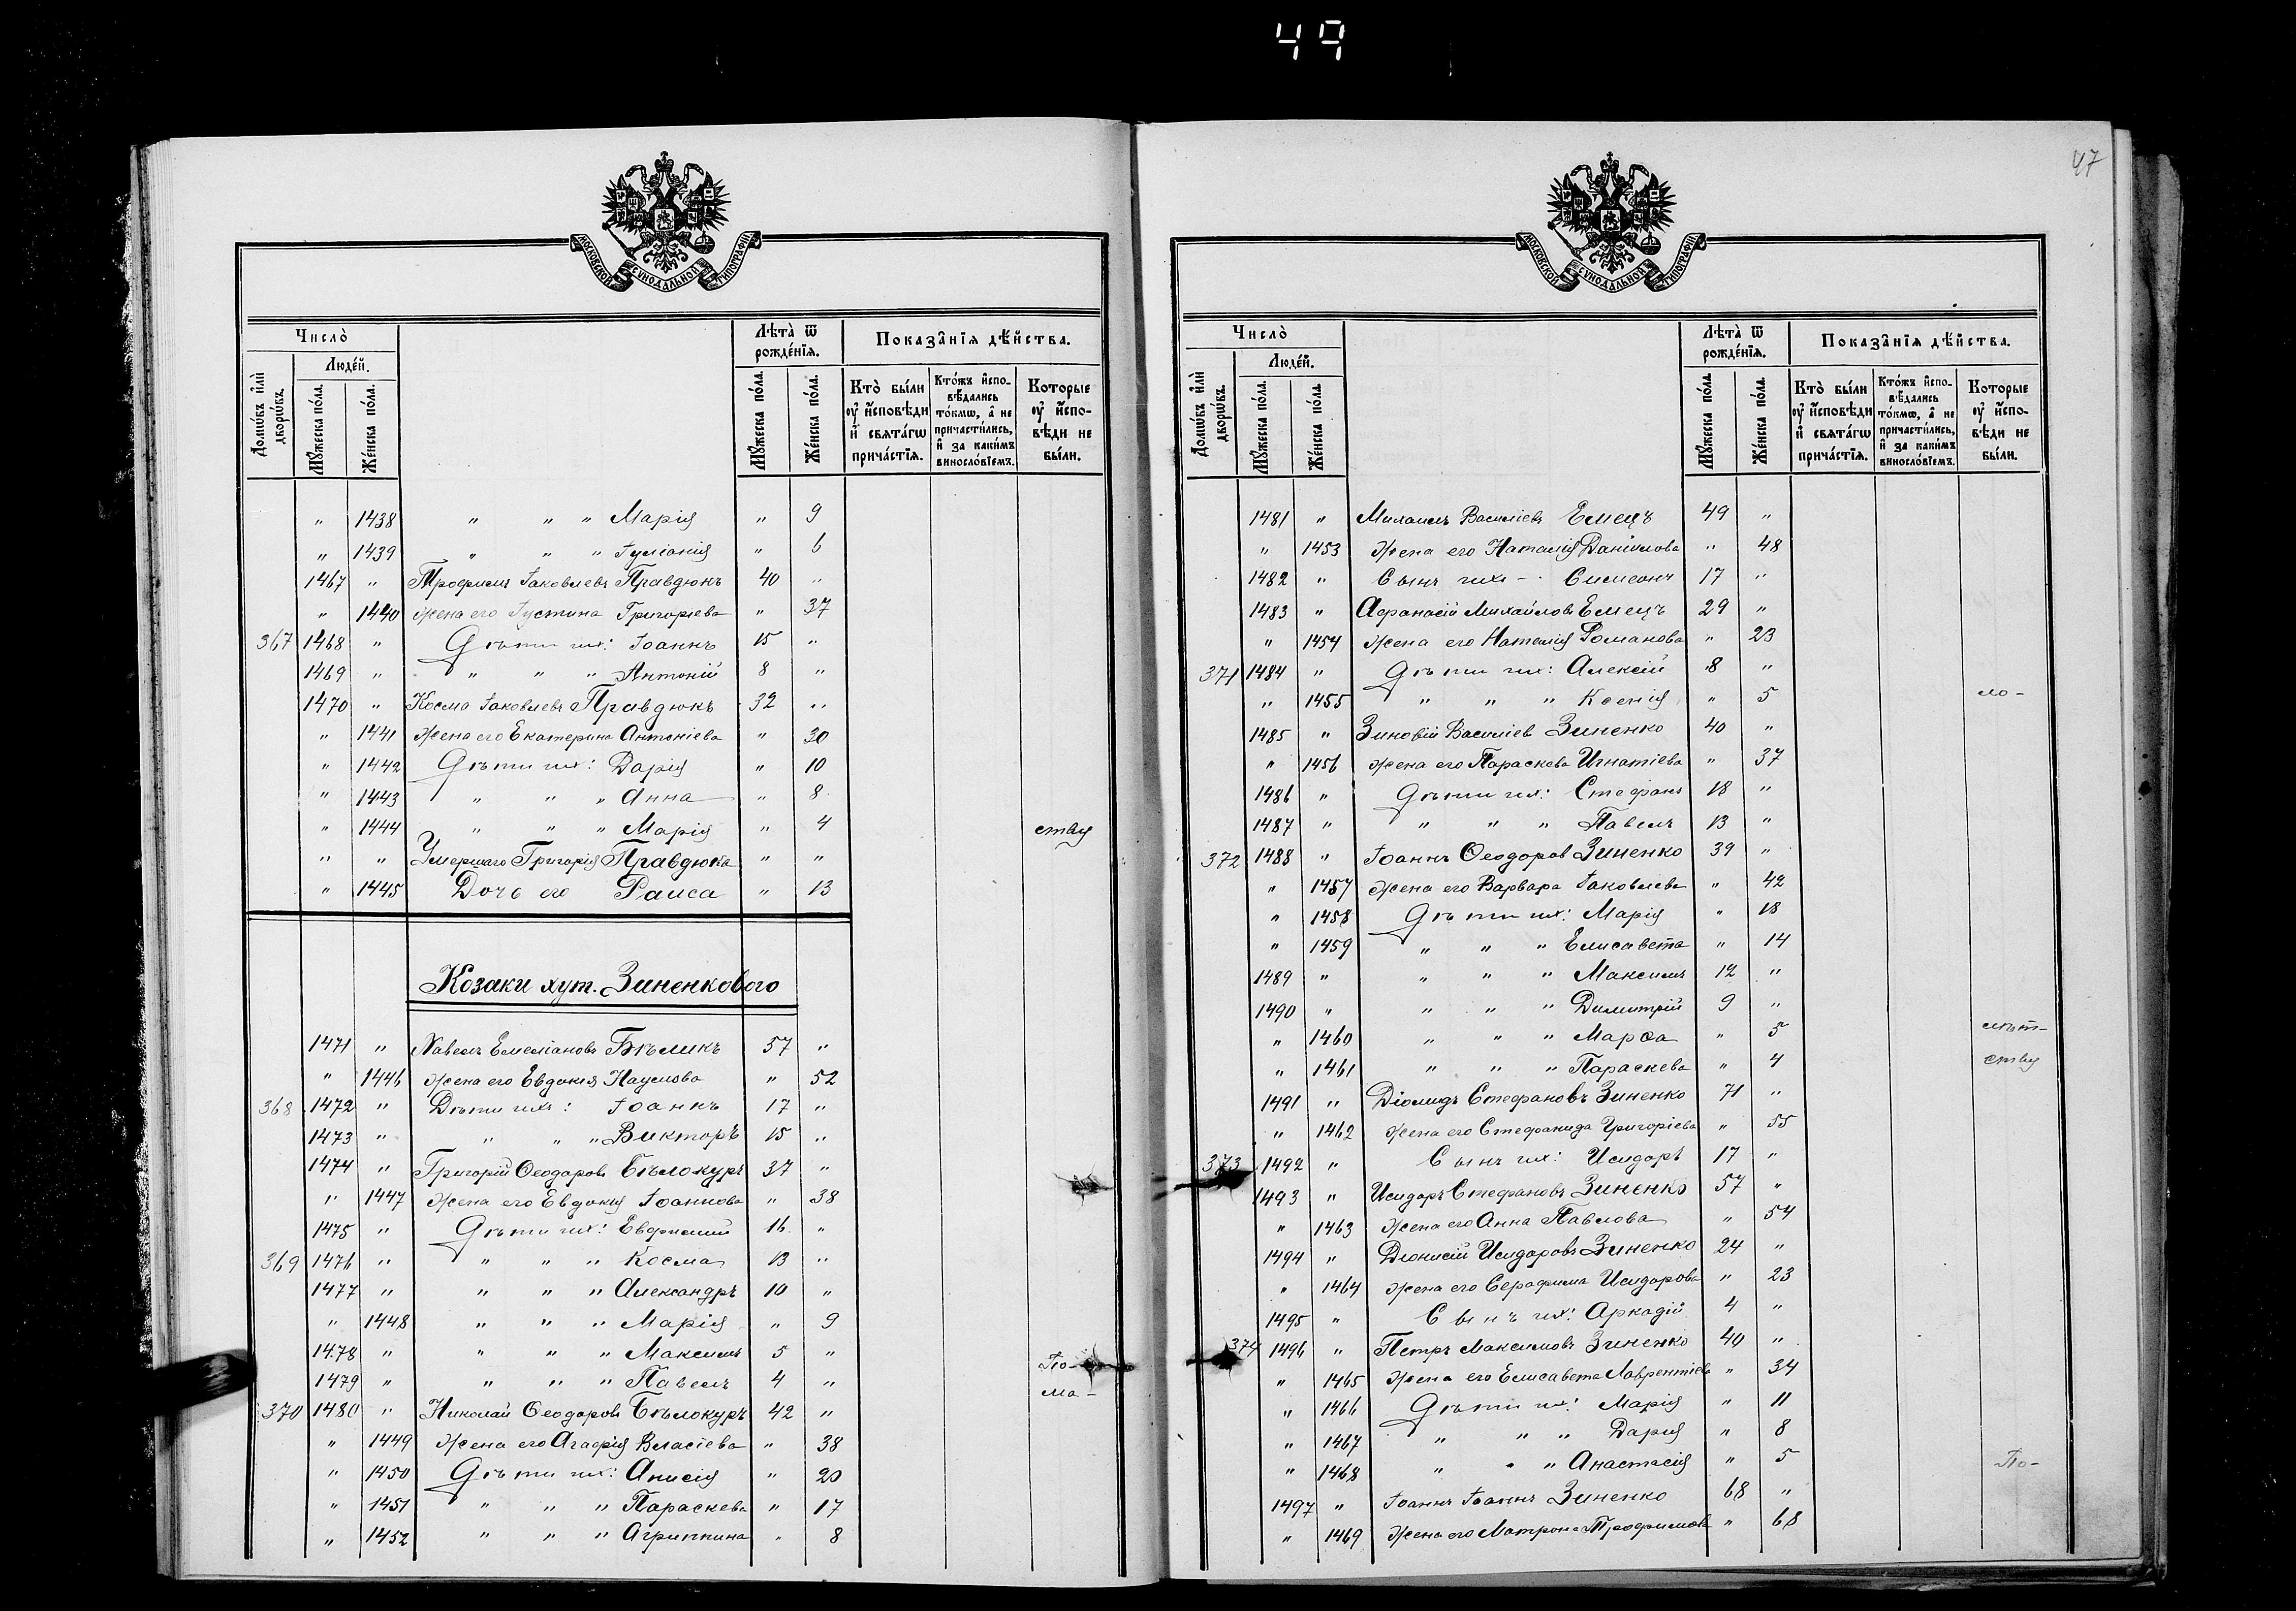 49
МОСКОВСКОЙ СѴНОДАЛЬНОЙ ТИПОГРАФІИ
Число̀
Людéй.
Домѡ́въ и҆лѝ дворѡ́въ.
Мꙋ́жеска по́ла.
Же́нска по́ла.
Лѣ́та ѿ рожде́нїѧ.
Мꙋ́жеска по́ла.
Же́нска по́ла.
Показа̂нїѧ дѣ́йства.
Кто̀ бы́ли ᲂу҆ и҆сповѣди и҆ свѧта́гѡ прича́стїѧ.
Кто́жъ и҆спо-вѣдались то́кмѡ, а҆ не причасти́лись, и҆ за каки́мъ винословїемъ.
Которые ᲂу҆ и҆спо-вѣди не бы́ли.
" 1438 " " " Марія " 9
" 1439 " " " Іуліанія " 6
1467 " Трофимъ Іаковлевъ Правдюкъ 40 "
" 1440 Жена его Іустина Григоріева " 37
367 1468 " Дѣти ихъ: Іоаннъ 15 "
1469 " " " " Антоній 8 "
1470 " Косма Іаковлевъ Правдюкъ 32 "
" 1441 Жена его Екатерина Антоніева " 30
" 1442 Дѣти ихъ: Дарія " 10
" 1443 " " " Анна " 8
" 1444 " " " Марія " 4 ству
" " Умершаго Григорія Правдюка " "
" 1445 Дочь его Раиса " 13
Козаки хут. Зиненкового
1471 " Павелъ Емеліановъ Бѣликъ 57 "
" 1446 Жена его Евдокія Наумова " 52
368 1472 " Дѣти ихъ: Іоаннъ 17 "
1473 " " " " Викторъ 15 "
1474 " Григорій Ѳеодоровъ Бѣлокуръ 37 "
" 1447 Жена его Евдокія Іоаннова " 38
1475 " Дѣти ихъ: Евфимій 16 "
369 1476 " " " " Косма 13 "
1477 " " " " Александръ 10 "
" 1448 " " " Марія " 9
1478 " " " " Максимъ 5 " По-
1479 " " " " Павелъ 4 " ма-
370 1480 " Николай Ѳеодоровъ Бѣлокуръ 42 "
" 1449 Жена его Агафія Власіева " 38
" 1450 Дѣти ихъ: Анисія " 20
" 1451 " " " Параскева " 17
" 1452 " " " Агриппина " 8
47
МОСКОВСКОЙ СѴНОДАЛЬНОЙ ТИПОГРАФІИ
Число̀
Людéй.
Домѡ́въ и҆лѝ дворѡ́въ.
Мꙋ́жеска по́ла.
Же́нска по́ла.
Лѣ́та ѿ рожде́нїѧ.
Мꙋ́жеска по́ла.
Же́нска по́ла.
Показа̂нїѧ дѣ́йства.
Кто̀ бы́ли ᲂу҆ и҆сповѣди и҆ свѧта́гѡ прича́стїѧ.
Кто́жъ и҆спо-вѣдались то́кмѡ, а҆ не причасти́лись, и҆ за каки́мъ винословїемъ.
Которые ᲂу҆ и҆спо-вѣди не бы́ли.
1481 " Михаилъ Василіевъ Емецъ 49 "
" 1453 Жена его Наталія Даніилова " 48
1482 " Сынъ ихъ - Симеонъ 17 "
1483 " Афанасій Михайловъ Емецъ 29 "
" 1454 Жена его Наталія Романова " 23
371 1484 " Дѣти ихъ: Алексій 8 "
" 1455 " " " Ксенія " 5 ло-
1485 " Зиновій Василіев Зиненко 40 "
" 1456 Жена его Параскева Игнатіева " 37
1486 " Дѣти ихъ: Стефанъ 18 "
1487 " " " " Павелъ 13 "
372 1488 " Іоаннъ Ѳеодоров Зиненко 39 "
" 1457 Жена его Варвара Іаковлева " 42
" 1458 Дѣти ихъ: Марія " 18
" 1459 " " " Елисавета " 14
1489 " " " " Максимъ 12 "
1490 " " " " Димитрій 9 "
" 1460 " " " Марѳа " 5 лѣт-
" 1461 " " " Параскева " 4 ству
1491 " Діомидъ Стефановъ Зиненко 71 "
" 1462 Жена его Стефанида Григоріева " 55
373 1492 " Сынъ ихъ: Исидоръ 17 "
1493 " Исидоръ Стефановъ Зиненко 57 "
" 1463 Жена его Анна Павлова " 54
1494 " Діонисій Исидоровъ Зиненко 24 "
" 1464 Жена его Серафима Исидорова " 23
1495 " Сынъ ихъ: Аркадій 4 "
374 1496 " Петръ Максимовъ Зиненко 40 "
" 1465 Жена его Елисавета Лаврентіева " 34
" 1466 Дѣти ихъ: Марія " 11
" 1467 " " " Дарія " 8
" 1468 " " " Анастасія " 5 По-
1497 " Іоаннъ Іоаннъ Зиненко 68 "
" 1469 Жена его Матрона Трофимова " 68